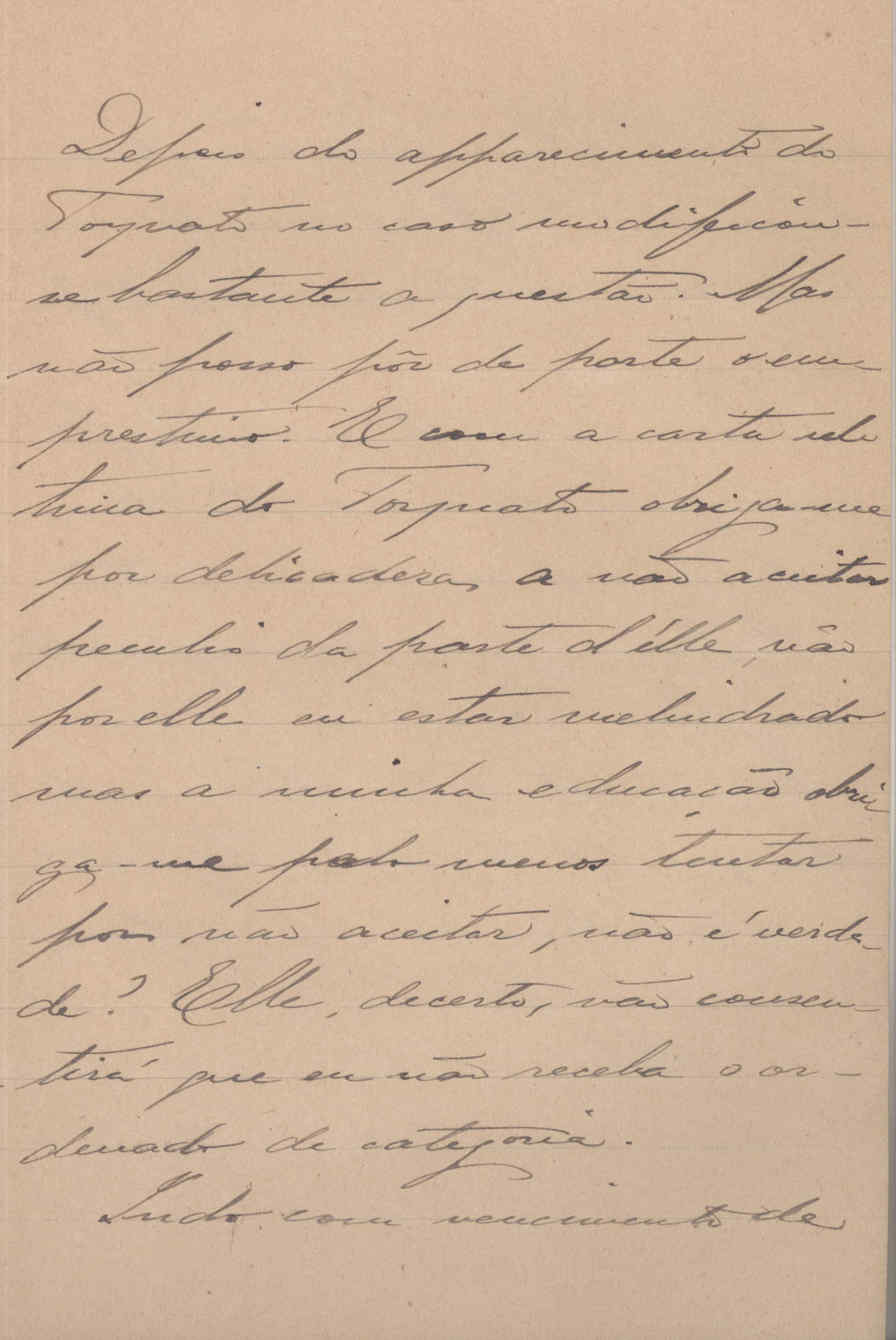 Depois do apparecimento do
Torquato no caso modificou-
se bastante a questão. Mas
não posso pôr de parte o em
prestimo. E com a carta ul
tima do Torquato obriga-me
por delicadeza, a não aceitar
peculio da parte d'elle, não
por elle eu estar melindrado
mas a minha educação obri
ga-me pelo menos tentar
por não aceitar, não é verda-
de? Elle, decerto, não consen-
tirá que eu não receba o or-
denado de categoria.
Indo com vencimento de